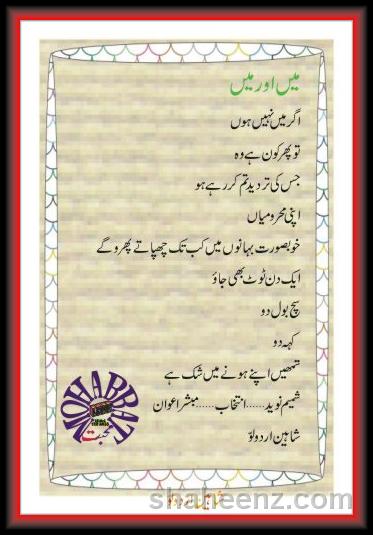 میں اور میں
اگر میں نہیں ہوں
تو پھر کون ہے وہ
جس کی تردید تم کر رہے ہو
اپنی محرومیاں
خوبصورت بہانوں میں کب تک چھپاتے پھرو گے
ایک دن ٹوٹ بھی جاؤ
سچ بول دو
کہہ دو
تمھیں اپنے ہونے میں شک ہے
شمیم نوید......انتخاب......مبشر اعوان
شاہین اردو لوّ
MOHABBAT
محبت
شاہین اردو لو
shaheenz.com